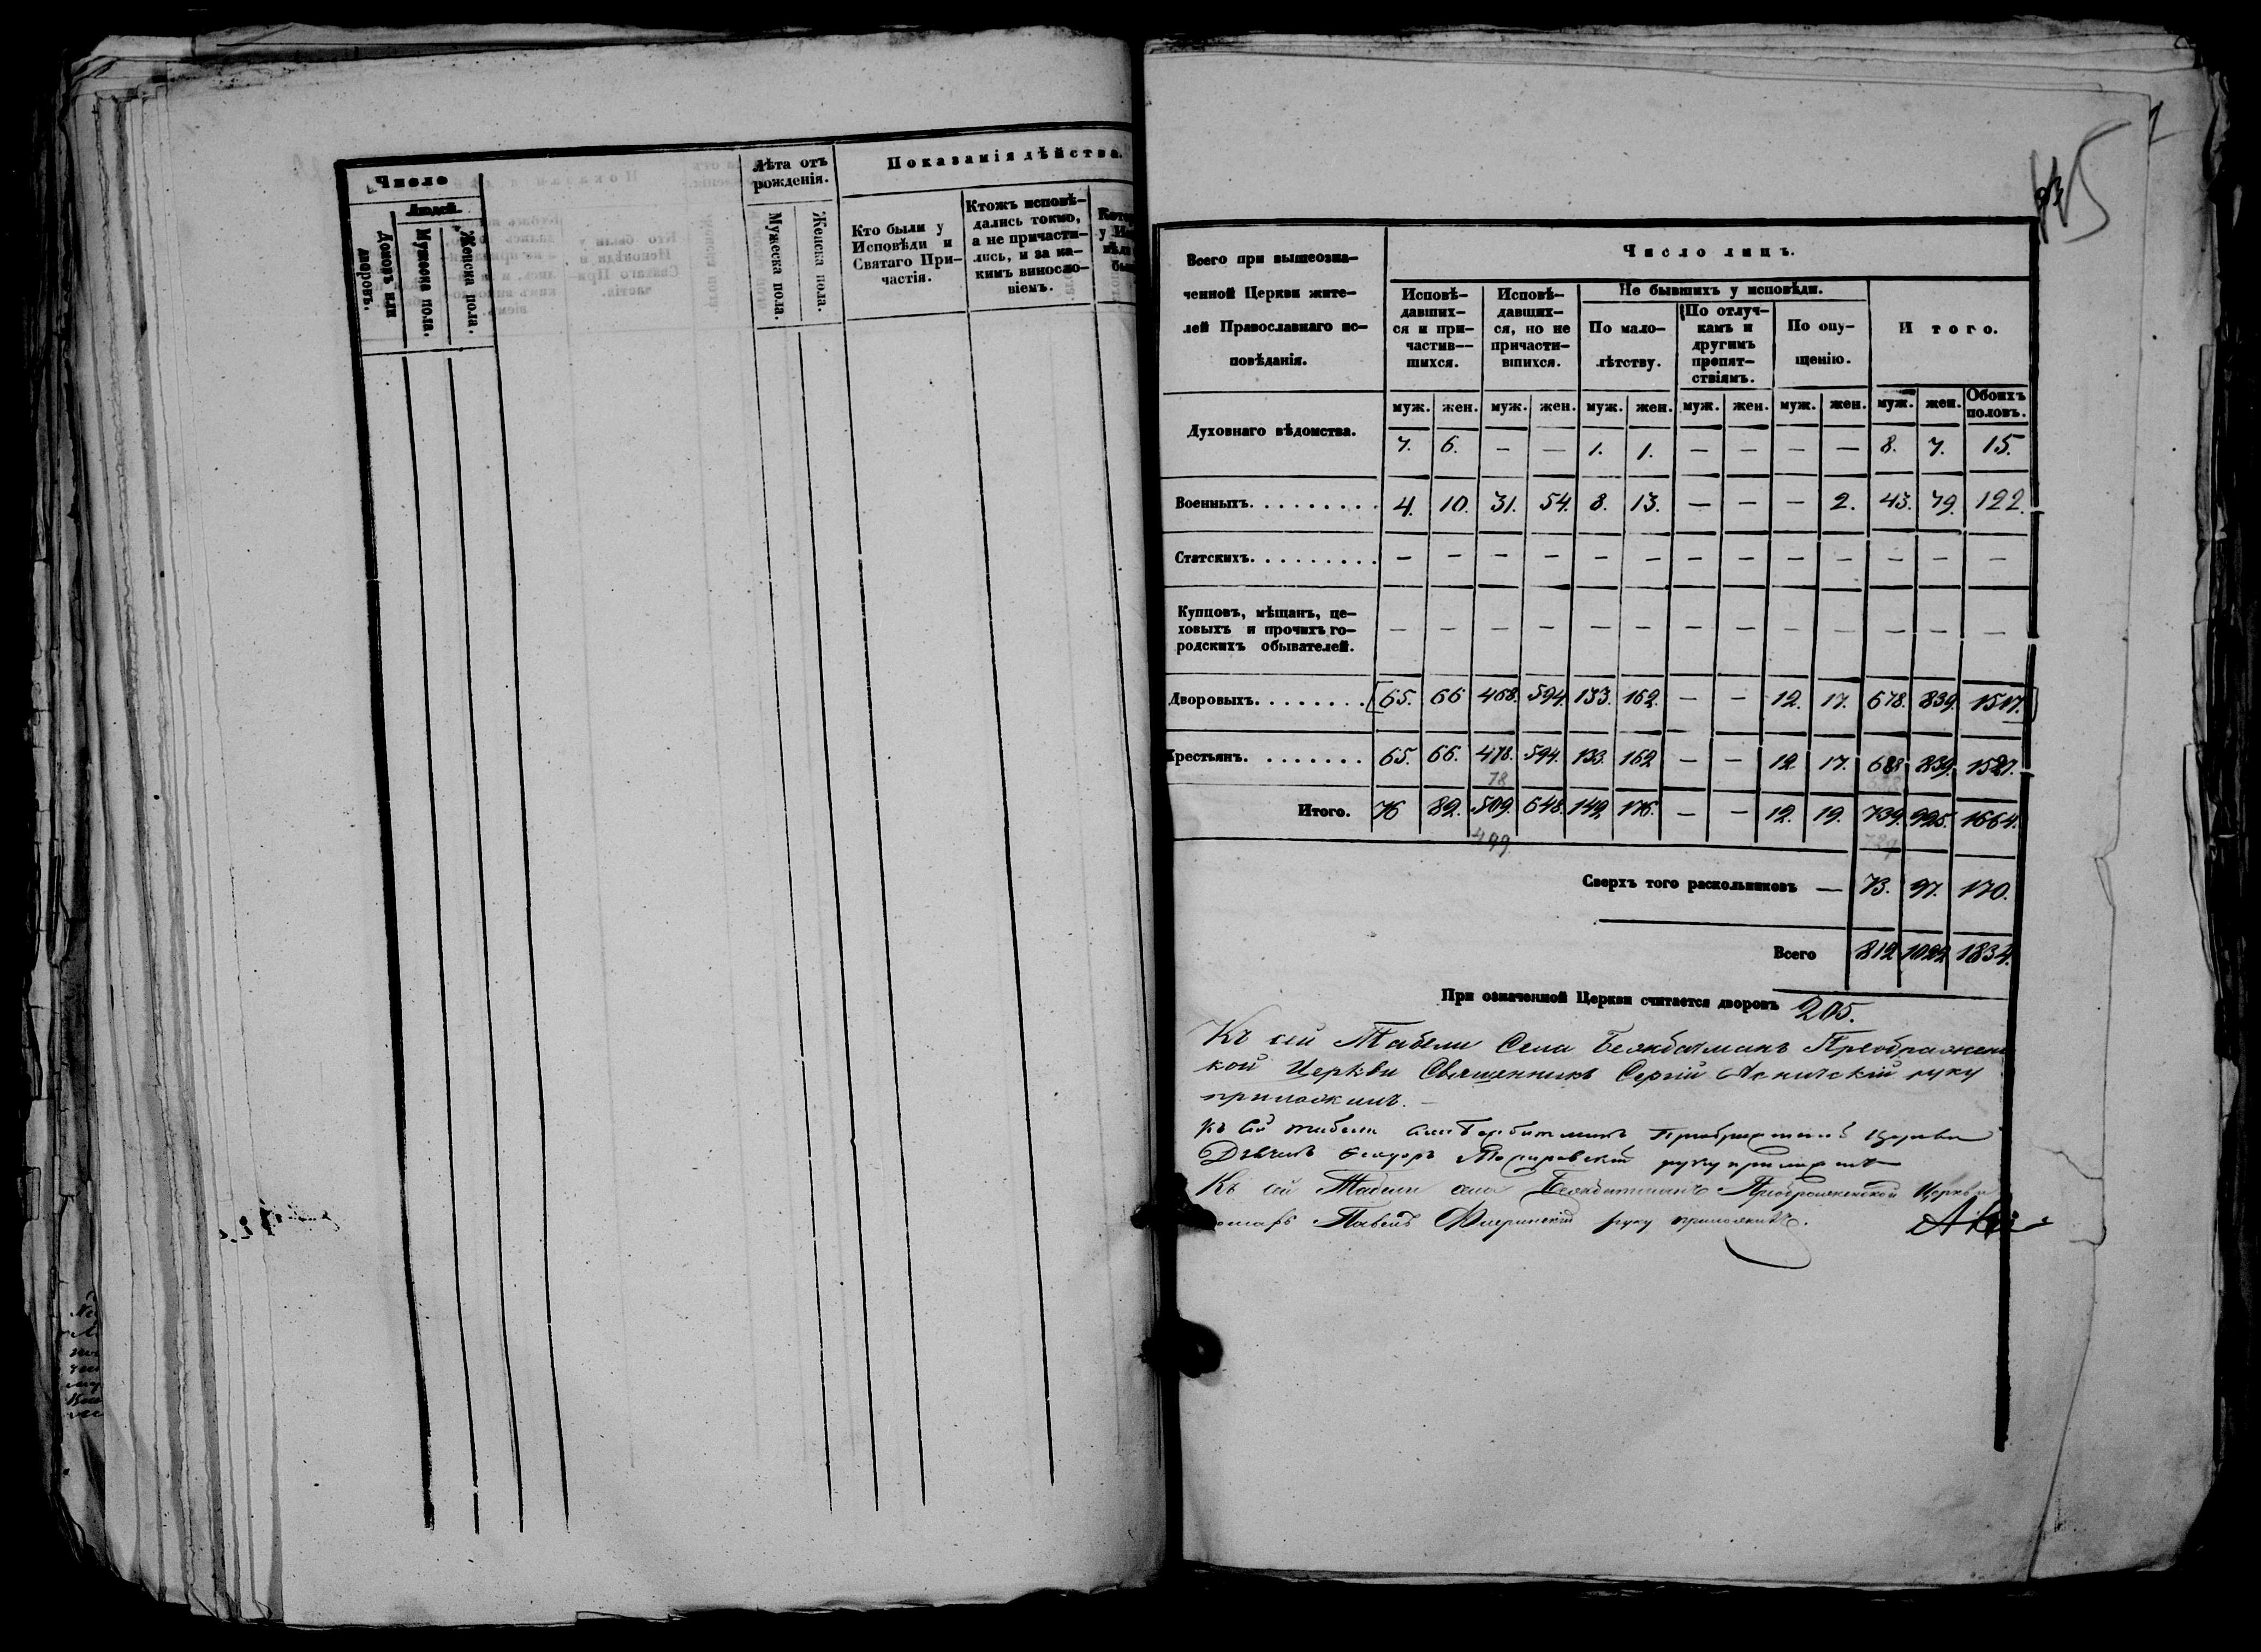 Число
Людей.
Домовъ или
дворовъ.
Мужеска пола.
Женска пола.
Лѣта отъ
рожденія.
Мужеска пола.
Женска пола.
Показанія дѣйства.
Кто были у
Исповѣди и
Святаго При-
частія.
Ктожъ исповѣ-
дались токмо,
а не причасти-
лись, и за ка-
кимъ винослo-
віемъ.
Всего при вышеозна-
ченной Церкви жите-
лей Православнаго ис-
повѣданія.
Число лицъ.
Исповѣ-
давших-
ся и при-
частив-
шихся.
Исповѣ-
давших-
ся, но не
причасти-
вшихся.
Не бывшихъ у исповѣди.
По мало-
лѣтству.
По отлуч-
камъ и
другимъ
препят-
ствіямъ.
По опу-
щенію.
Итого.
муж. жен. муж. жен. муж. жен. муж. жен. муж. жен. муж. жен. Обоихъ половъ.
Духовнаго вѣдомства. 7. 6. — — 1. 1. — — — — 8. 7. 15.
Военныхъ. . . . . . . . . 4. 10. 31. 54. 8. 13. — — — 2. 43. 79. 122.
Статскихъ. . . . . . . . . — — — — — — — — — — — — —
Купцовъ, мѣщанъ, це-
ховыхъ и прочихъ го-
родскихъ обывателей. — — — — — — — — — — — — —
Дворовыхъ. . . . . . . . [65. 66 468. 594. 133. 162. — — 12. 17. 678. 839. 1517.]
Крестьянъ. . . . . . . . 65. 66. 478. 594. 133. 162 — — 12. 17. 688 839. 1527.
78
Итого. 76 82. 509. 648. 142 176. — — 12. 19. 739. 925. 1664.
499
Сверхъ того раскольниковъ — 73. 97. 170.
Всего 812 1022 1834.
При означенной Церкви считается дворовъ 205.
Къ сей Табели Села Преображен
кой Церкви Священникъ Сергій руку
приложилъ.
Къ сей табели Церкви
руку приложилъ
Къ сей Табели села Преображенской Церкви
Павелъ руку приложилъ.